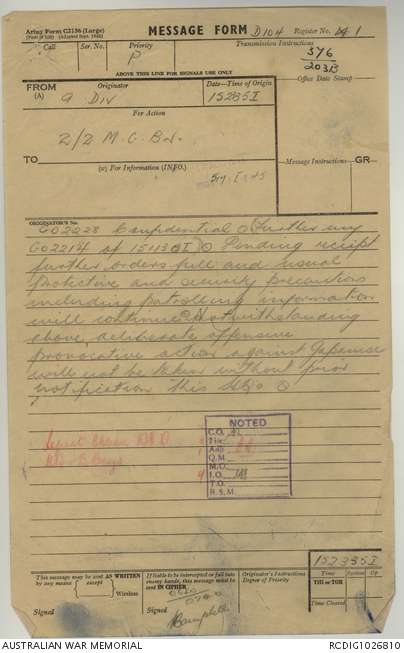 Army Form C2136 (Large)
(Pads of 100) (Adapted Sept. 1942)
MESSAGE FORM D104 Register No. 1
Call Ser. No. Priority Transmission Instructions
P
576
203B
ABOVE THIS LINE FOR SIGNALS USE ONLY
Office Date Stamp
FROM Originator Date-Time of Origin
(A) 9 Div 152235I
For Action
2/2 M.G. Bn.
TO
(w) For Information (INFO.) Message Instructions GR
ORIGINATOR'S No.
GO2228 Confidential O Further my
GO2214 of 151130I O Pending receipt
further orders full and usual
protective and security precautions
including patrolling information
will continue O Notwithstanding
above deliberate offensive
provocative action against Japanese
will not be taken without prior
notification this HQ O
NOTED
C.O.
2 i/c
Adj.
Q.M.
M.O.
I.O.
T.O.
R.S.M.
152335I
This message may be sent AS WRITTEN
by any means (except)
Wireless
If liable to be intercepted or fall into
enemy hands, this message must be
sent IN CIPHER
Originator's Instructions
Degree of Priority
Time System Op
THI or TOR
Time Cleared
Signed
Signed
AUSTRALIAN WAR MEMORIAL RCDIG1026810